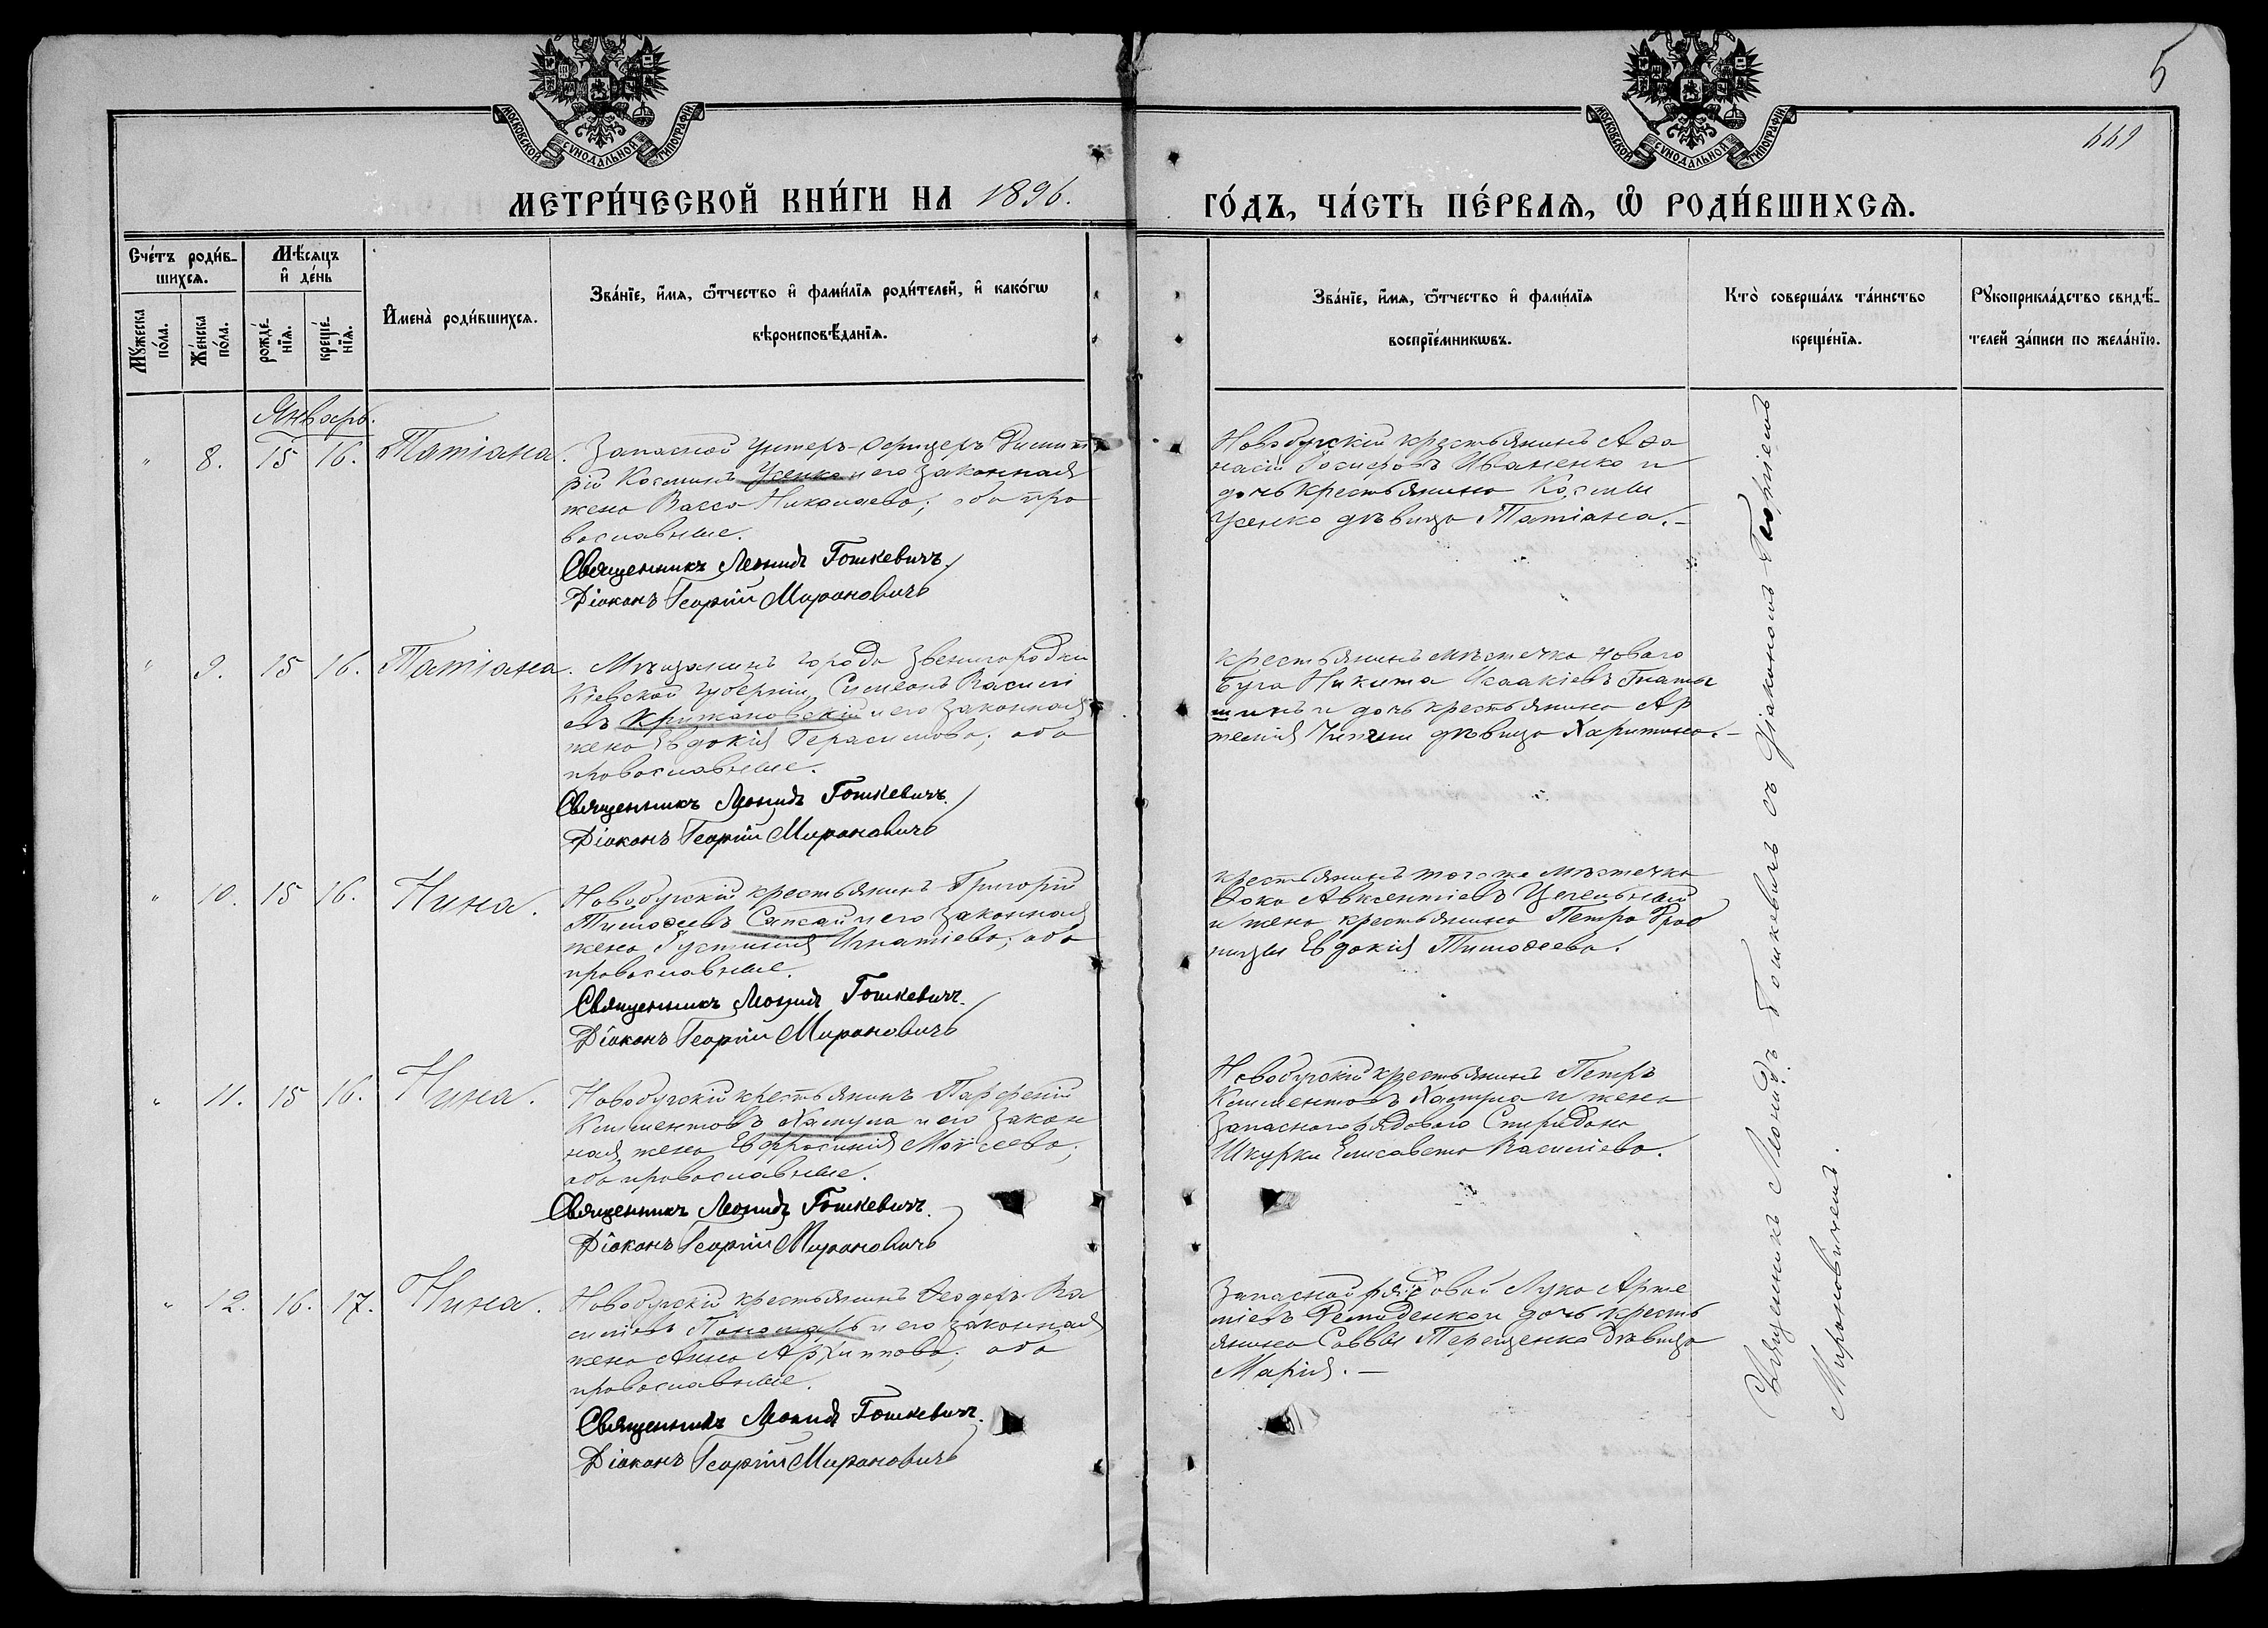 5
449
МОСКОВСКОЙ СѴНОДАЛЬНОЙ ТИПОГРАФІИ
МОСКОВСКОЙ СѴНОДАЛЬНОЙ ТИПОГРАФІИ
МЕТРИ́ЧЕСКОЙ КНИ́ГИ НА 1896.
ГО́ДЪ, ЧА́СТЬ ПЕ́РВАѦ, Ѽ РОДИ́ВШИХСѦ.
Сче́тъ роди́в-
шихсѧ.
Мѣ́сѧцъ
и҆ де́нь
Мꙋ́жеска по́ла.
Же́нска по́ла.
рожде́-
нїѧ.
креще́-
нїѧ.
И҆мена̀ роди́вшихсѧ.
Зва́нїе, и҆́мѧ, ѻ҆́тчество и҆ фами́лїѧ роди́телей, и҆ како́гѡ
вѣроисповѣ́данїѧ.
Зва́нїе, и҆́мѧ, ѻ҆́тчество и҆ фами́лїѧ
воспрїе́мникѡвъ.
Кто̀ соверша́лъ та́инство
креще́нїѧ.
Рꙋкоприкла́дство свидѣ́-
телей за́писи по жела́нїю.
Январь.
" 8. 15 16. Татіана.
Запасной унтеръ-офицеръ Димит
рій Косминъ Усенко и его законная
жена Васса Николаева; оба пра
вославные.
Священникъ Леонидъ Гошкевичъ.
Діаконъ Георгій Мироновичъ
Новобугскій крестьянинъ Аѳа
насій Іосифовъ Иваненко и
дочь крестьянина Космы
Усенко дѣвица Татіана.–
" 9. 15 16. Татіана.
Мѣщанинъ города Звенигородки
Кіевской губерніи, Симеонъ Васильі
евъ Крижановскій и его законная
жена Евдокія Герасимова; оба
православные.
Священникъ Леонидъ Гошкевичъ.
Діаконъ Георгій Мироновичъ
крестьянинъ мѣстечка Новаго
Буга Никита Исаакіевъ Гнаты
шинъ и дочь крестьянина Ар
темія дѣвица Харитина.–
" 10. 15 16. Нина.
Новобугскій крестьянинъ Григорій
Тимоѳеевъ Сапсай и его законная
жена Іустинія Игнатіева; оба
православные.
Священникъ Леонидъ Гошкевичъ.
Діаконъ Георгій Мироновичъ
крестьянинъ тогоже мѣстечка
Ѳока Авксентіевъ Цегельный
и жена крестьянина Петра Граб
Евдокія Тимоѳеева.
" 11. 15 16. Нина.
Новобугскій крестьянинъ Парфеній
Климентовъ Хатула и его закон
ная жена Евфросинія Моисеева;
оба православные.
Священникъ Леонидъ Гошкевичъ.
Діаконъ Георгій Мироновичъ
Новобугскій крестьянинъ Петръ
Климентовъ Хатула и жена
запаснаго рядоваго Спиридона
Шкурки Елисавета Васильева.
" 12. 16. 17. Нина.
Новобугскій крестьянинъ Ѳеодоръ Ва
силіевъ Пономарь и его законная
жена Анна Архиппова; оба
православные.
Священникъ Леонидъ Гошкевичъ.
Діаконъ Георгій Мироновичъ
Запасной рядовой Лука Арте
міевъ Демиденко и дочь кресть
янина Саввы Терещенка дѣвица
Марія.–
Священникъ Леонидъ Гошкевичъ съ діакономъ Георгіемъ
Мироновичемъ.